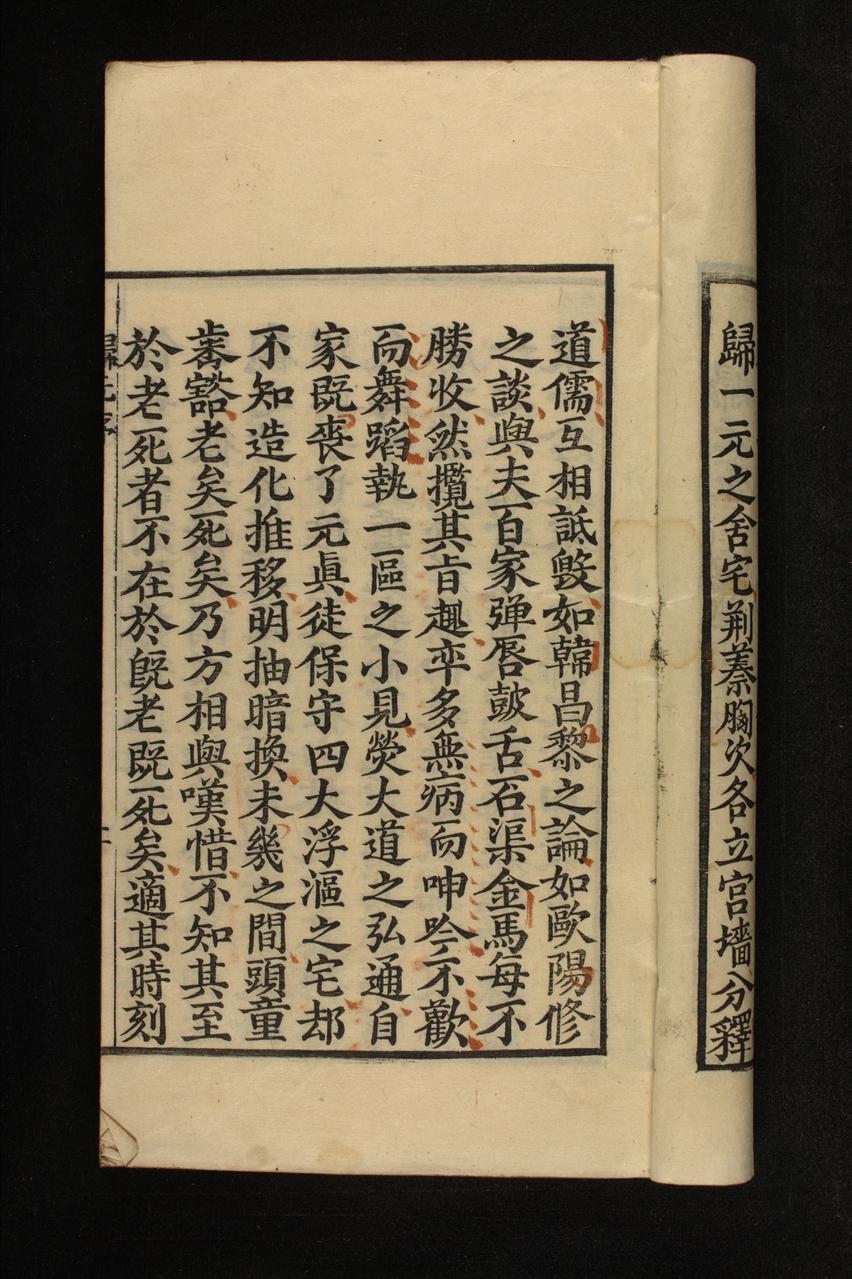 歸一元之舍宅荆蓁胸次各立宫墻分釋
道儒互相詆毀如韓昌黎之論如歐陽修
之談與夫百家弾唇皷舌石渠金馬每不
勝收然攬其旨趣率多無病而呻吟不歡
而舞蹈執一區之小見熒大道之弘通自
家既喪了元眞徒保守四大浮漚之宅却
不知造化推移明抽暗換未幾之間頭童
齒豁老矣死矣乃方相與嘆惜不知其至
於老死者不在於既老既死矣適其時刻
歸元
二